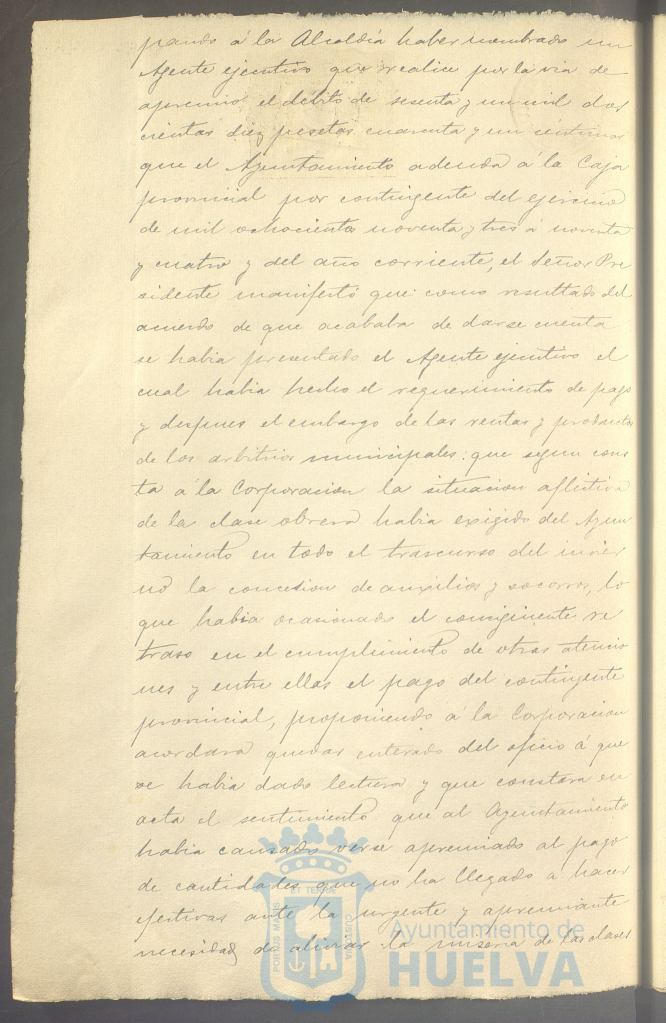 pando á la Alcaldía haber nombrado un
Agente ejecutivo que realice por la via de
apremio el débito de sesenta y un mil dos
cientas diez pesetas cuarenta y un céntimos
que el Ayuntamiento adeuda á la Caja
provincial por contingente del ejercicio
de mil ochocientos noventa y tres á noventa
y cuatro y del año corriente, el Señor Pre
sidente manifestó que como resultado del
acuerdo de que acababa de darse cuenta
se habia presentado el Agente ejecutivo el
cual habia hecho el requerimiento de pago
y despues el embargo de las rentas y productos
de los arbitrios municipales: que segun cons
ta a la Corporacion la situacion aflictiva
de la clase obrera habia exigido del Ayun
tamiento en todo el trascurso del invier
no la concesion de auxilios y socorros, lo
que habia ocasionado el consiguiente re
traso en el cumplimiento de otras atencio
nes y entre ellas el pago del contingente
provincial, proponiendo á la Corporacion
acordara quedar enterado del oficio á que
se habia dado lectura y que constara en
acta el sentimiento que al Ayuntamiento
habia causado verse apremiado al pago
de cantidades que no ha llegado á hacer
efectivas ante la urgente y apremiante
necesidad de aliviar la miseria de las clases
ET TERRA
PORTUS MARIS
CUSTODIA
Ayuntamiento de
HUELVA